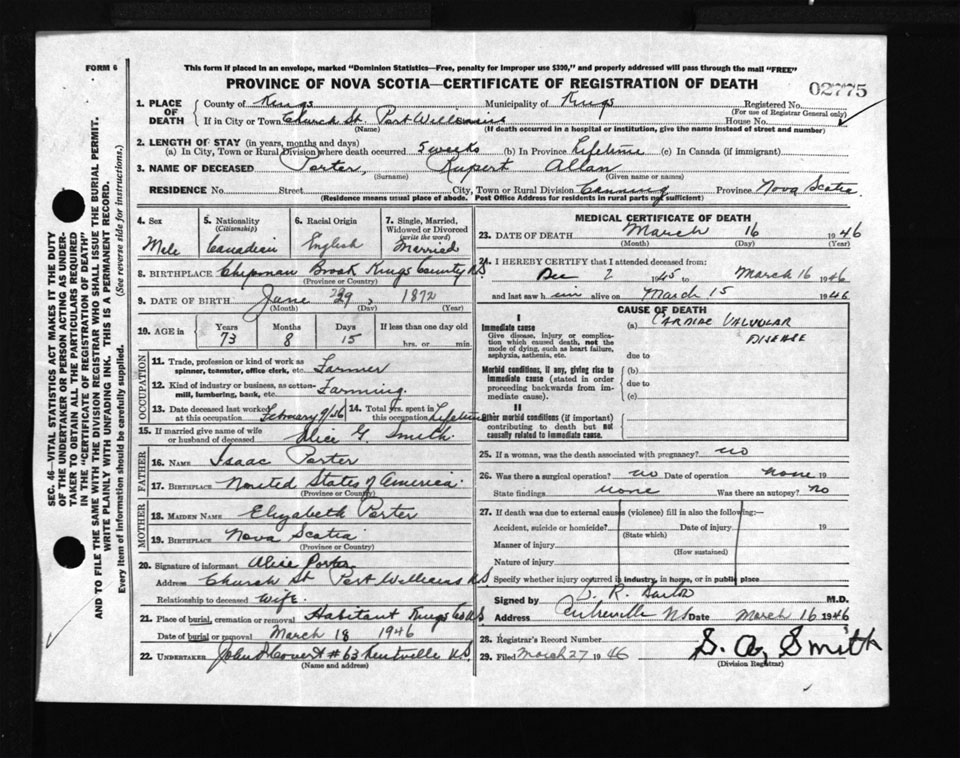 FORM 6
This form if placed in an envelope, marked "Dominion Statistics—Free, penalty for improper use $300," and properly addressed will pass through the mail "FREE"
PROVINCE OF NOVA SCOTIA—CERTIFICATE OF REGISTRATION OF DEATH
02775
1. PLACE OF DEATH { County of Kings Municipality of Kings Registered No.
(For use of Registrar General only)
If in City or Town Church St. Port Williams House No.
(Name) (If death occurred in a hospital or institution, give the name instead of street and number)
2. LENGTH OF STAY (in years, months and days)
(a) In City, Town or Rural Division where death occurred 5 weeks (b) In Province Lifetime (c) In Canada (if immigrant)
3. NAME OF DECEASED Porter, Rupert Allan
(Surname) (Given name or names)
RESIDENCE No. Street City, Town or Rural Division Canning Province Nova Scotia
(Residence means usual place of abode. Post Office Address for residents in rural parts not sufficient)
4. Sex
Male
5. Nationality
(Citizenship)
Canadian
6. Racial Origin
English
7. Single, Married, Widowed or Divorced
(write the word)
Married
8. BIRTHPLACE Chipman Brook Kings County N.S
(Province or Country)
9. DATE OF BIRTH June 29, 1872
(Month) (Day) (Year)
10. AGE in Years Months Days If less than one day old
73 8 15 hrs. or min.
OCCUPATION
11. Trade, profession or kind of work as spinner, teamster, office clerk, etc. Farmer
12. Kind of industry or business, as cotton-mill, lumbering, bank, etc. Farming
13. Date deceased last worked at this occupation February 9/46 14. Total yrs. spent in this occupation Lifetime
15. If married give name of wife or husband of deceased Alice G. Smith.
FATHER
16. NAME Isaac Porter
17. BIRTHPLACE United States of America.
(Province or Country)
MOTHER
18. MAIDEN NAME Elizabeth Porter
19. BIRTHPLACE Nova Scotia
(Province or Country)
20. Signature of informant Alice Porter
Address Church St Port Williams N.S
Relationship to deceased Wife.
21. Place of burial, cremation or removal Habitant Kings Co N.S
Date of burial or removal March 18 1946
22. UNDERTAKER #63 Kentville N.S.
(Name and address)
MEDICAL CERTIFICATE OF DEATH
23. DATE OF DEATH March 16 1946
(Month) (Day) (Year)
24. I HEREBY CERTIFY that I attended deceased from:
Dec 2 1945 to March 16 1946
and last saw him alive on March 15 1946
CAUSE OF DEATH
I
Immediate cause
Give disease, injury or complication which caused death, not the mode of dying, such as heart failure, asphyxia, asthenia, etc.
(a) CARDIAC VALVULAR
DISEASE
due to
Morbid conditions, if any, giving rise to immediate cause (stated in order proceeding backwards from immediate cause).
(b)
due to
(c)
II
Other morbid conditions (if important) contributing to death but not causally related to immediate cause.
25. If a woman, was the death associated with pregnancy? no
26. Was there a surgical operation? no Date of operation none 19
State findings none Was there an autopsy? no
27. If death was due to external causes (violence) fill in also the following:—
Accident, suicide or homicide? Date of injury 19
(State which)
Manner of injury
(How sustained)
Nature of injury
Specify whether injury occurred in industry, in home, or in public place
Signed by M.D.
Address Centreville NS Date March 16 1946
28. Registrar's Record Number
29. Filed March 27 1946 Smith
(Division Registrar)
SEC. 46—VITAL STATISTICS ACT MAKES IT THE DUTY
OF THE UNDERTAKER OR PERSON ACTING AS UNDER-
TAKER TO OBTAIN ALL THE PARTICULARS REQUIRED
IN THE "CERTIFICATE OF REGISTRATION OF DEATH"
AND TO FILE THE SAME WITH THE DIVISION REGISTRAR WHO SHALL ISSUE THE BURIAL PERMIT.
WRITE PLAINLY WITH UNFADING INK. THIS IS A PERMANENT RECORD.
Every item of information should be carefully supplied. (See reverse side for instructions.)